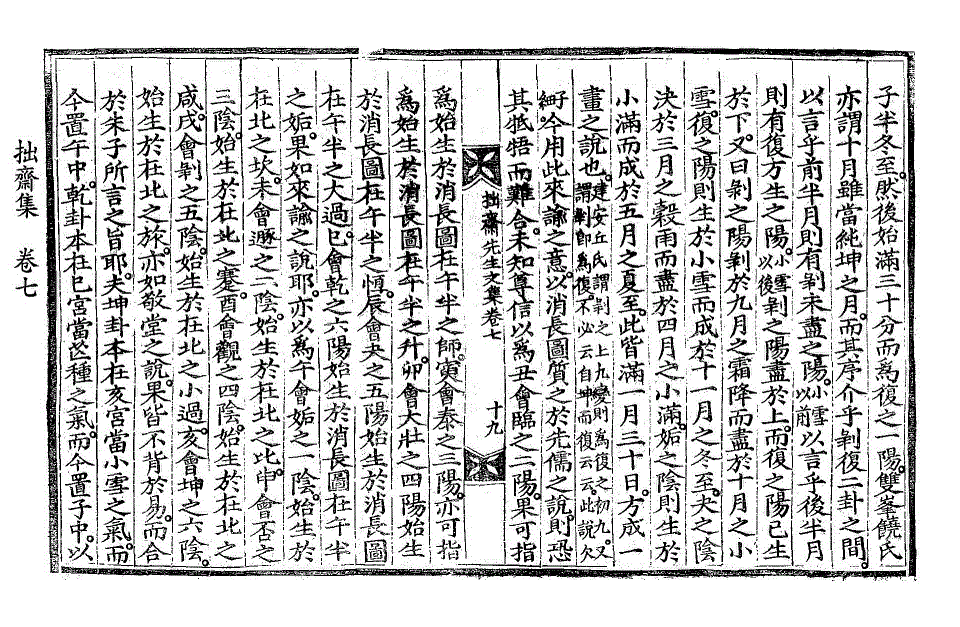 子半冬至。然後始滿三十分而爲復之一陽。雙峯饒氏
亦謂十月雖當純坤之月。而其序介乎剝復二卦之間。
以言乎前半月則有剝未盡之陽。小雪以前 以言乎後半月
則有復方生之陽。小雪以後 剝之陽盡於上。而復之陽已生
於下。又曰剝之陽剝於九月之霜降而盡於十月之小
雪。復之陽則生於小雪而成於十一月之冬至。夬之陰
決於三月之穀雨而盡於四月之小滿。姤之陰則生於
小滿而成於五月之夏至。此皆滿一月三十日。方成一
畫之說也。建安丘氏謂剝之上九變則爲復之初九。又謂剝卽爲復。不必云自坤而復云云。此說欠
細。今用此來諭之意。以消長圖質之於先儒之說。則恐
其牴牾而難合。未知尊信以爲丑會臨之二陽。果可指
拙齋先生文集卷七 十九
爲始生於消長圖在午半之師。寅會泰之三陽。亦可指
爲始生於消長圖在午半之升。卯會大壯之四陽始生
於消長圖在午半之恒。辰會夬之五陽始生於消長圖
在午半之大過。巳會乾之六陽始生於消長圖在午半
之姤。果如來諭之說耶。亦以爲午會姤之一陰。始生於
在北之坎。未會遯之二陰。始生於在北之比。申會否之
三陰。始生於在北之蹇。酉會觀之四陰。始生於在北之
咸。戌會剝之五陰。始生於在北之小過。亥會坤之六陰。
始生於在北之旅。亦如敬堂之說。果皆不背於易。而合
於朱子所言之旨耶。夫坤卦本在亥宮當小雪之氣。而
今置午中。乾卦本在巳宮當芒種之氣。而今置子中。以
拙齋集 卷七